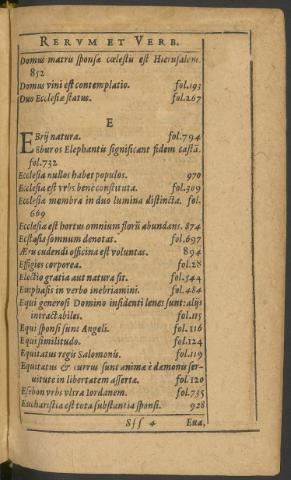 RERVM ET VERB.
Domus matris sponsæ cœlestis est Hierusalem.
852
Domus vini est contemplatio. fol.193
Duo Ecclesiæ status. fol.267
E
EBrij natura. fol.794
Ebur os Elephantis significant fidem castā.
fol.732
Ecclesia nullos habet populos. 970
Ecclesia est vrbs benè constituta. fol.309
Ecclesia membra in duo lumina distincta. fol.
669
Ecclesia est hortus omnium florū abundans. 874
Ecstasis somnum denotat. fol.697
Æris cudendi officina est voluntas. 894
Effigies corporea. fol.28
Electio gratia aut natura fit. fol.544
Emphasis in verbo inebriamini. fol.484
Equi generosi Domino insidenti lenes sunt: alijs
intractabiles. fol.115
Equi sponsi sunt Angeli. fol.116
Equi similitudo. fol.124
Equitatus regis Salomonis. fol.119
Equitatus & currus sunt animæ è dæmonis ser-
uitute in libertatem assertæ. fol.120
Esebon vrbs vltra Iordanem. fol.735
Eucharistia est tota substantia sponsi. 928
Sss 4 Eua,